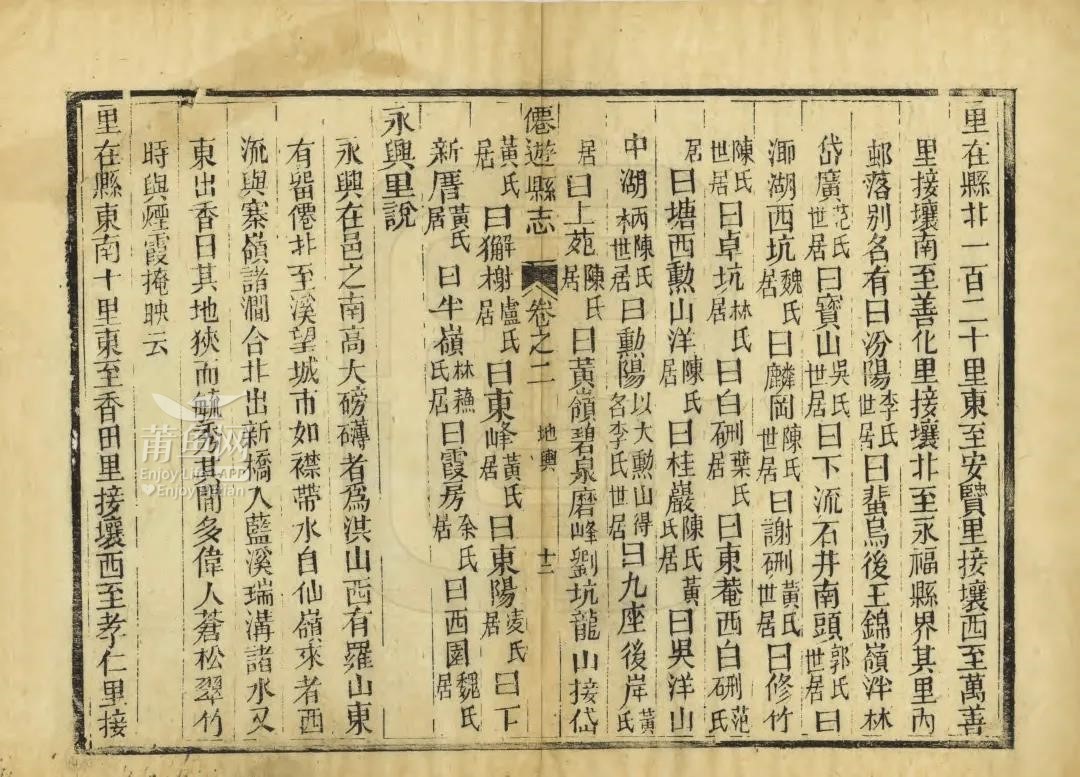 里在縣北一百二十里東至安賢里接壤西至萬善
里接壤南至善化里接壤北至永福縣界其里內
邨落別名有曰汾陽李氏世居曰蜚烏後王錦嶺泮林
岱廣范氏世居曰寶山吳氏世居曰下流石井南頭郭氏世居曰
湖西坑魏氏居曰麟岡陳氏世居曰謝硎黃氏世居曰修竹
陳氏世居曰卓坑林氏居曰白硎葉氏居曰東菴西白硎范氏
居曰塘西勲山洋陳氏居曰桂巖陳氏黃氏居曰吳洋山
中湖丙林陳氏世居曰勲陽以大勲山得名李氏世居曰九座後岸黃氏
居曰上苑陳氏居曰黃嶺碧泉磨峰劉坑龍山接岱
僊遊縣志 卷之二 地輿 十二
黃氏居曰獬榭盧氏居曰東峰黃氏居曰東陽凌氏居曰下
新厝黃氏居曰半嶺林蘓氏居曰霞房余氏居曰西園魏氏居
永興里說
永興在邑之南高大磅礴者爲洪山西有羅山東
有留僊北至溪望城市如襟帶水自仙嶺來者西
流與寨嶺諸澗合北出新橋入藍溪瑞溝諸水又
東出香田其地狹而毓秀其間多偉人蒼松翠竹
時與煙霞掩映云
里在縣東南十里東至香田里接壤西至孝仁里接
莆鱼网
EnjoyLife·APP
EnjoyPutian